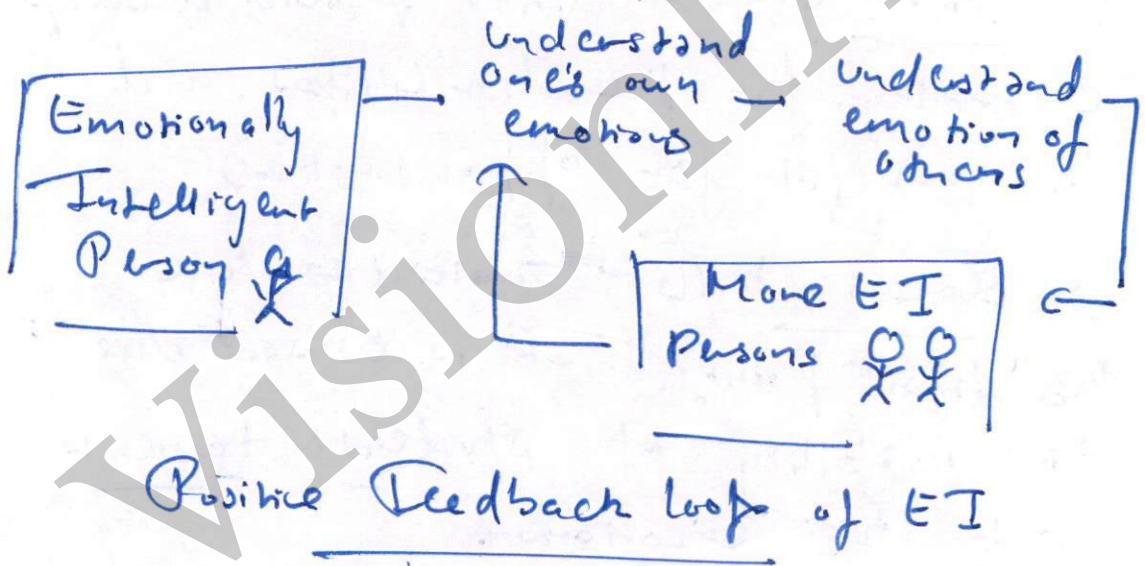 Emotionally
Intelligent
Person
understand
one's own
emotions
understand
emotion of
others
More EI
Persons
Positive Feedback loop of EI
Vision